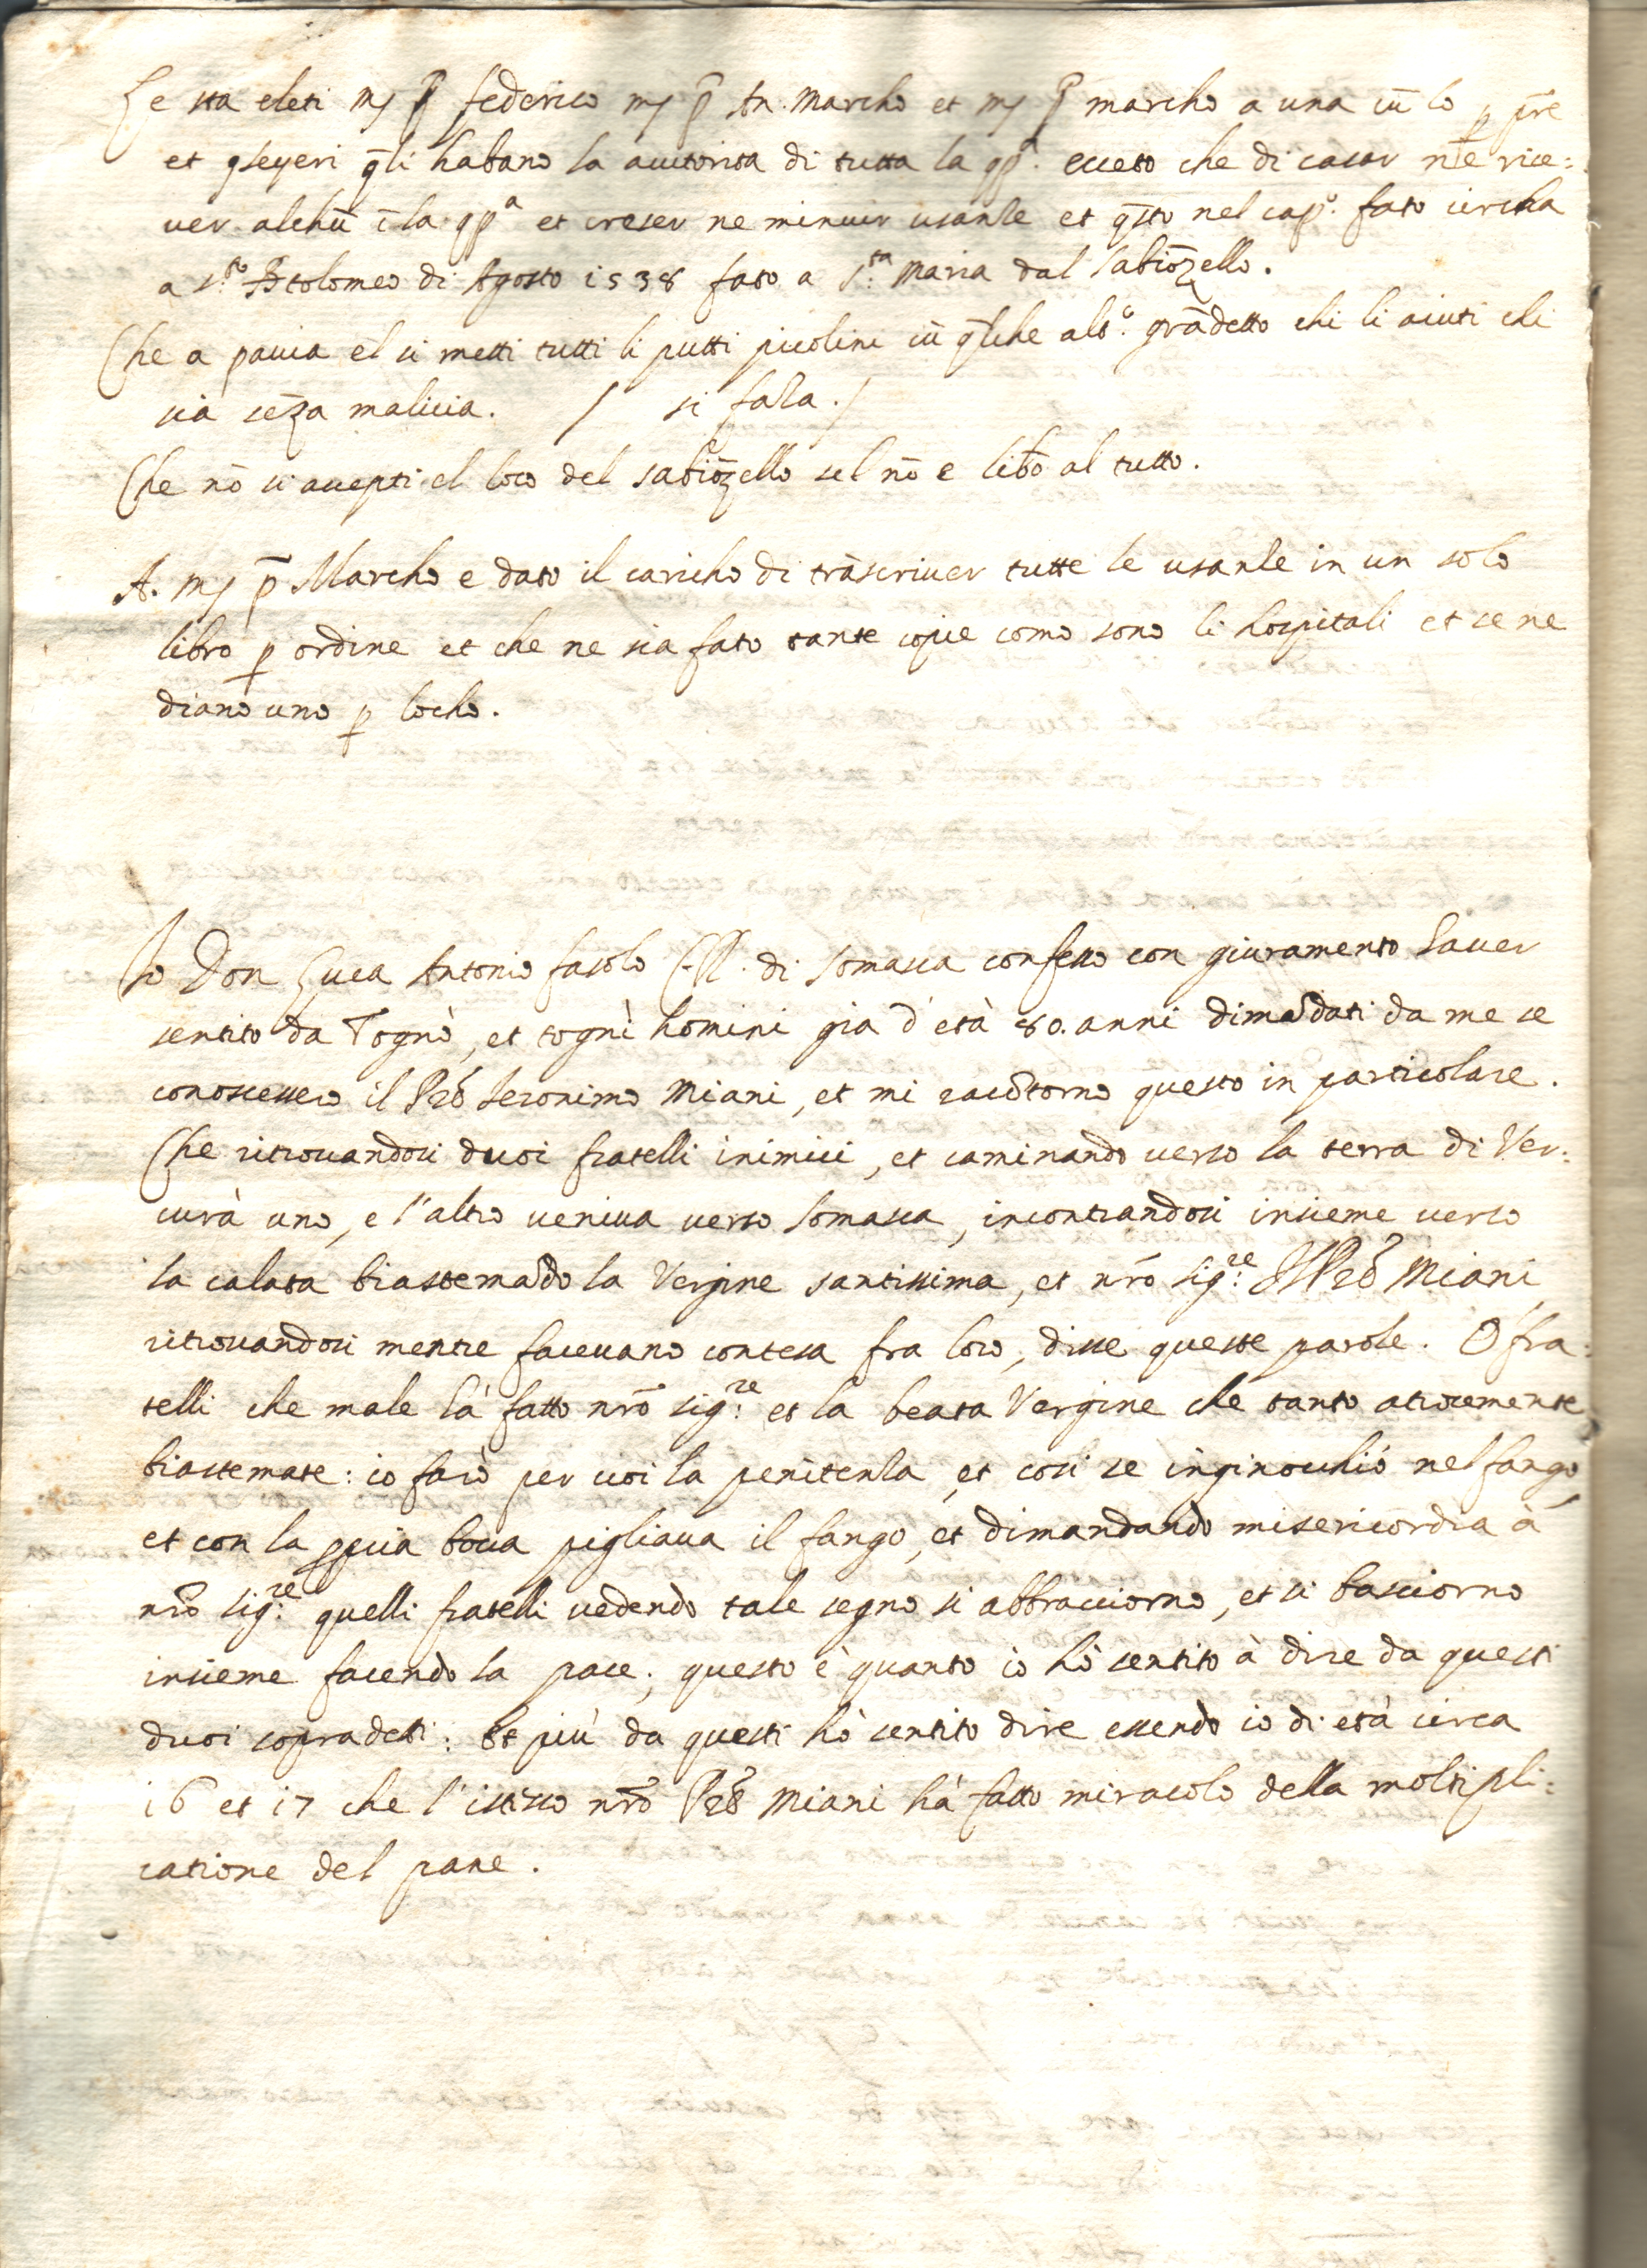 Le sta eleti mſ p̄ federico mſ p̄ An. Marcho et mſ p̄ marcho a una cū lo p p̄re
et q̄li habano la autorita di tutta la qp.ª eceto che di cacar ne rice:
ver alchū ī la qpª et creser ne minuir usanze et q̄sto nel cap.º fato circha
a S.to Btolomeo di Agosto 1538 fato a S.ta Maria dal Sabiōzello.
Che a pavia el si metti tutti li putti picolini cū q̄lche alt.º grādetto chi li aiuti chi
sia sēza malicia. / si fara./
Che nō si accepti el loco del sabiōzello sel nō e libō al tutto.
A. mſ p̄ Marcho e dato il caricho di trāscriver tutte le usanze in un solo
libro p ordine et che ne sia fato tante copie como sono li hospitali et se ne
diano uno p locho.
Io Don Luca Antonio fasolo di Somasca confesso con giuramento haver
sentito da Tognò, et tognì homini già d'età 80. anni dimādati da me se
conoscessero il Prē Ieronimo Miani, et mi racōtorno questo in particolare.
Che ritrovandosi duoi fratelli inimici, et caminando verso la terra di Ver:
curà uno, e l'altro veniva verso Somasca, incontrandosi insieme verso
la calata biastemādo la Vergine santissima, et nrō sig.re Il Prē Miani
ritrovandosi mentre facevano contesa fra loro, disse queste parole. O fra:
telli che male hà fatto nrō sig.re et la beata Vergine che tanto atrocemente
biastemate: io farò per voi la penitenza, et cosi se inginocchiò nel fango,
et con la ppria boca pigliava il fango, et dimandando misericordia à
nrō sig.re quelli fratelli vedendo tale segno si abbracciorno, et si basciorno
insieme facendo la pace; questo è quanto io hò sentito à dire da questi
duoi sopradetti: Et più da questi hò sentito dire essendo io di età circa
16 et 17 che l'istesso nrō Prē Miani hà fatto miracolo della moltipli:
catione del pane.